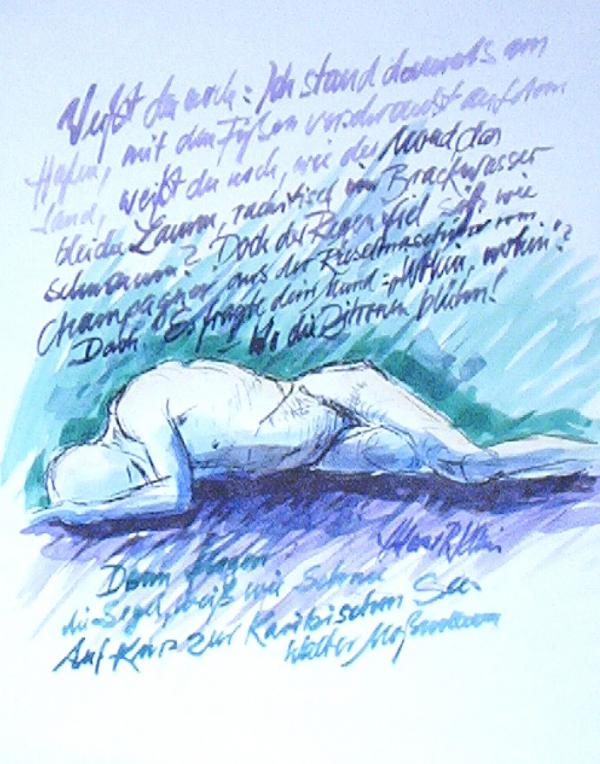 Weißt du noch: Ich stand damals am
Hafen, mit den Füßen verschränkt auf dem
Land, weißt du noch, wie der Mond das
bleiche Lamm, rachitisch im Brackwasser
schwamm? Doch der Regen fiel süß wie
Champagner aus der Rieselmaschine vom
Dach. Es fragte dein Mund: „Wohin, wohin"?
Wo die Zitronen blühen!
Dann flogen
die Segel, weiß wie Schnee
Auf Kurs zur Karibischen See.
Walter Moßmann